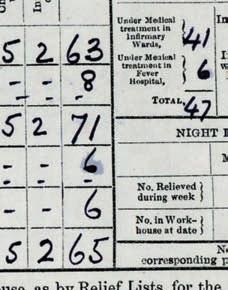 In
5 2 63
- - 8
5 2 71
- - 6
- - 6
5 2 65
Under Medical
treatment in
Infirmary
Wards,
41
Under Medical
treatment in
Fever
Hospital,
6
TOTAL, 47
NIGHT
No. Relieved
during week
No. in Work-
house at date
corresponding
as by Relief Lists, for the